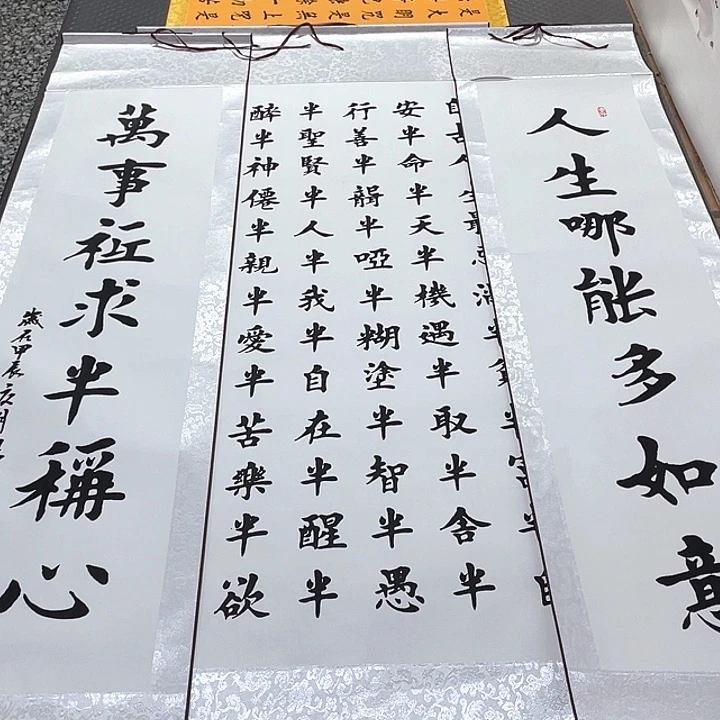 人生哪能多如意
自古人生最忌滿半貧半富半自
安半命半天半機遇半取半舍半
行善半半啞半糊塗半智半愚
半聖賢半人半我半自在半醒半
醉半神僊半親半愛半苦樂半欲
萬事求半稱心
甲辰